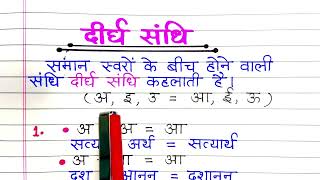 दीर्घ संधि
समान स्वरों के बीच होने वाली
संधि दीर्घ संधि कहलाती है।
(अ, इ, उ = आ, ई, ऊ)
1. • अ अ = आ
सत्य अर्थ = सत्यार्थ
• अ आ = आ
दश आनन = दशानन